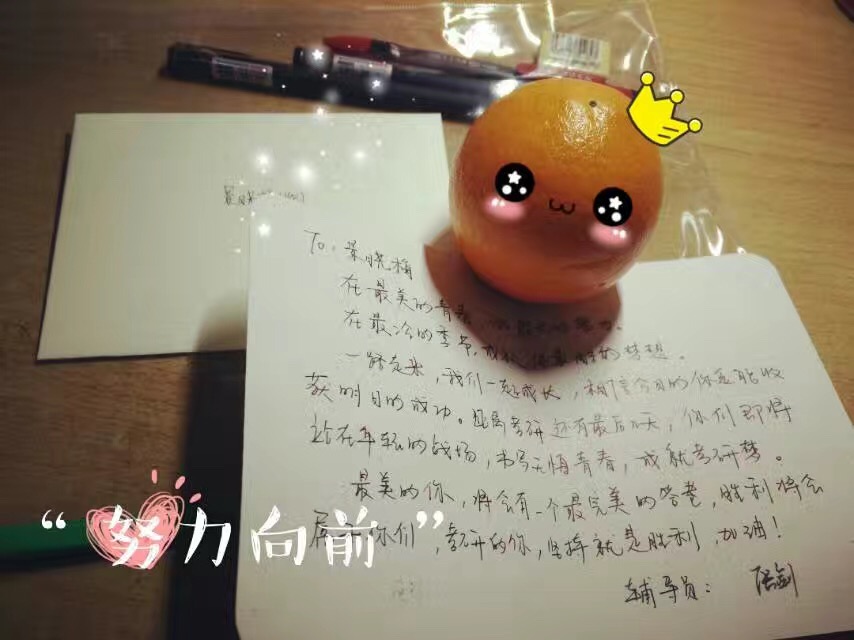 To:景晓梅
在最美的青春,
在最冷的季节,成就 的梦想。
一路走来,我们一起成长,相信今日的你定能收
获明日的成功。距离考研还有最后几天,你们即将
站在年轻的战场,书写无悔青春,成就考研梦。
最美的你,将会有一个最完美的答卷,胜利将会
属于你们,考研的你,坚持就是胜利,加油!
辅导员:
“努力向前”